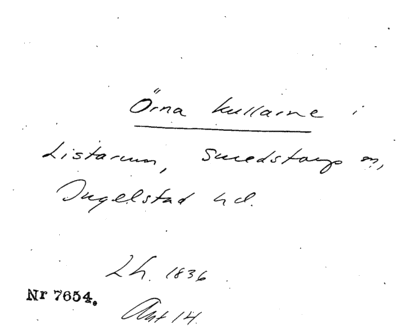 Örna kullarne i
Listarum, Smedstorp sn,
Ingelstad hd.
Lh. 1836
Nr 7654.
Ant 14.